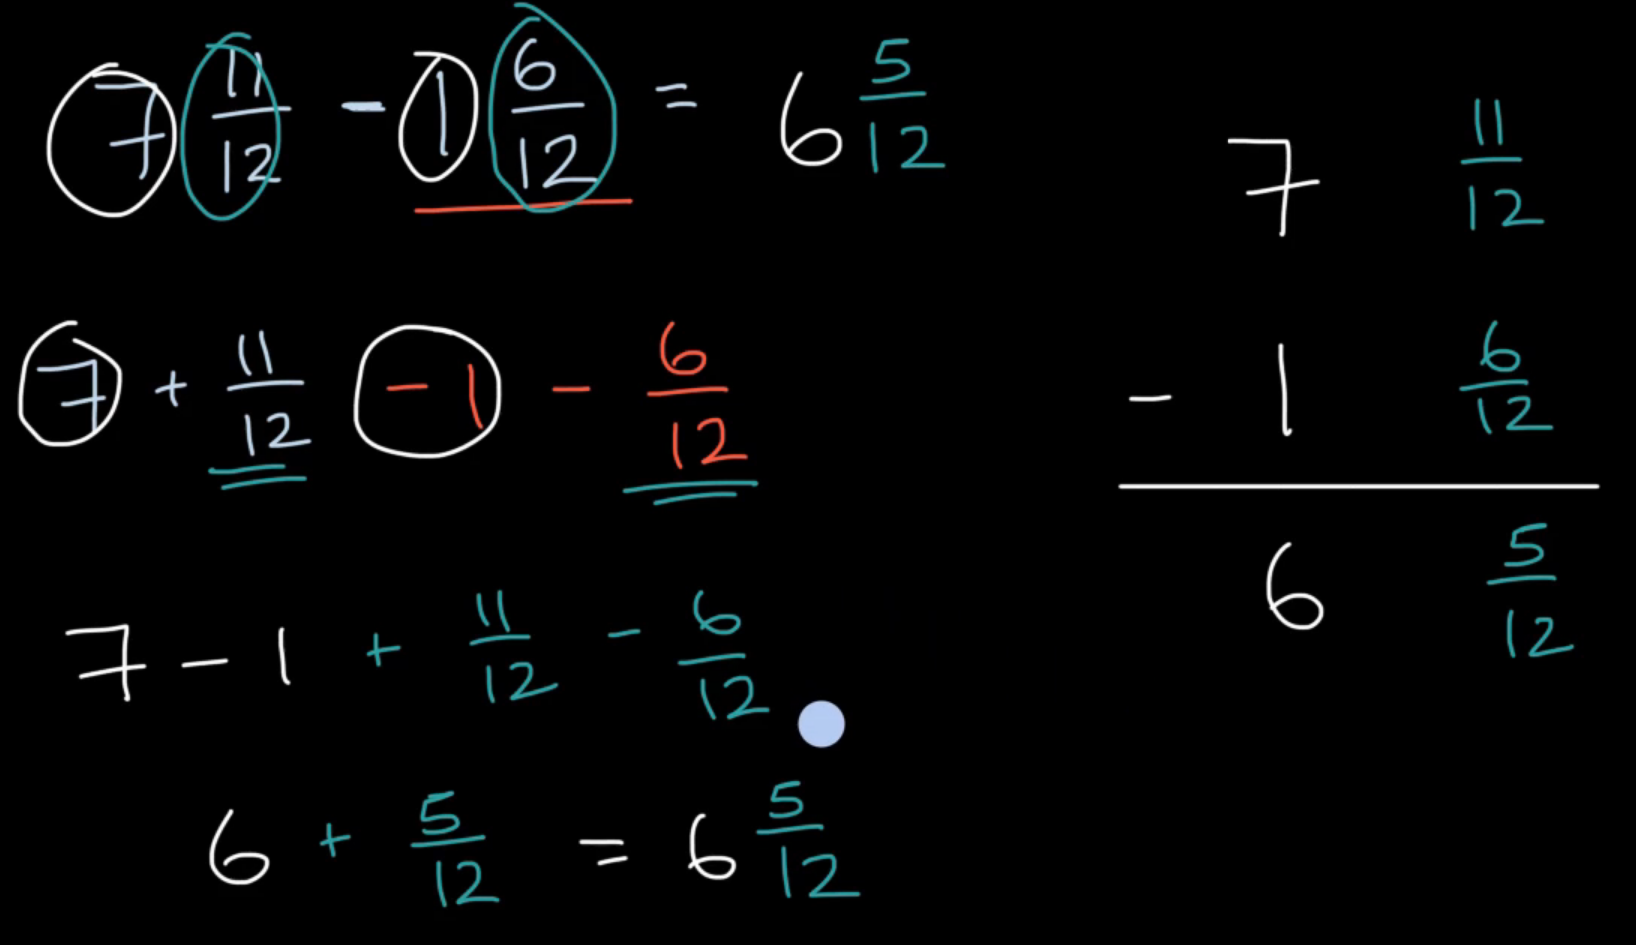 7 11/12 - 1 6/12 = 6 5/12
7 + 11/12 - 1 - 6/12
7 - 1 + 11/12 - 6/12
6 + 5/12 = 6 5/12
7 11/12
- 1 6/12
6 5/12